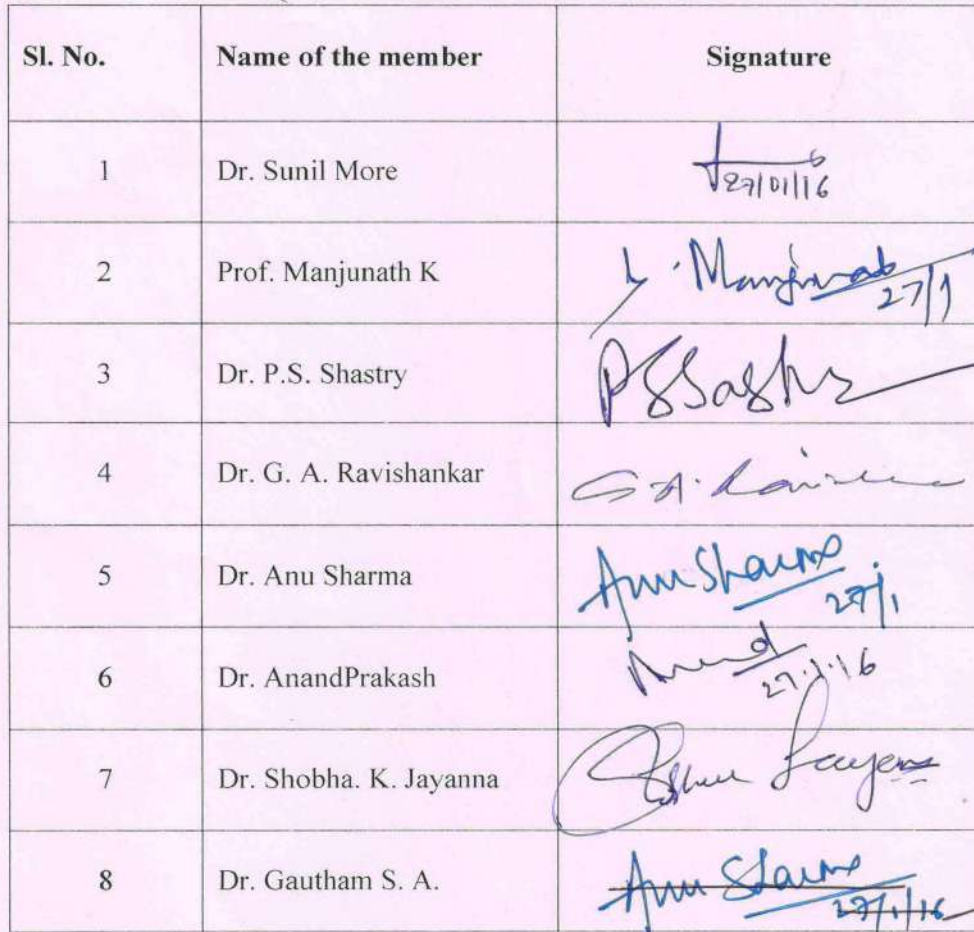 Sl. No. Name of the member Signature
1 Dr. Sunil More
27/01/16
2 Prof. Manjunath K
27/1
3 Dr. P.S. Shastry PSSastry
4 Dr. G. A. Ravishankar G.A.
5 Dr. Anu Sharma Anu Sharma
27/1
6 Dr. AnandPrakash Anand
27.1.16
7 Dr. Shobha. K. Jayanna
8 Dr. Gautham S. A. Anu Sharma
27/1/16